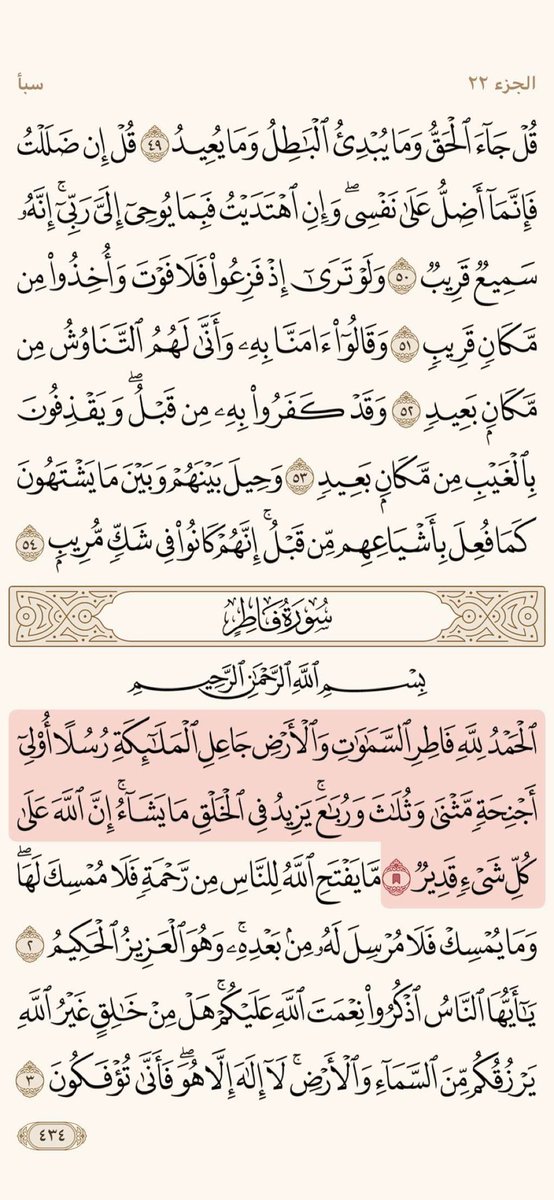 الجزء ٢٢
سبأ
قُلْ جَآءَ ٱلْحَقُّ وَمَا يُبْدِئُ ٱلْبَـٰطِلُ وَمَا يُعِيدُ ٤٩ قُلْ إِن ضَلَلْتُ
فَإِنَّمَآ أَضِلُّ عَلَىٰ نَفْسِى ۖ وَإِنِ ٱهْتَدَيْتُ فَبِمَا يُوحِىٓ إِلَىَّ رَبِّىٓ ۚ إِنَّهُۥ
سَمِيعٌ قَرِيبٌ ٥٠ وَلَوْ تَرَىٰٓ إِذْ فَزِعُوا۟ فَلَا فَوْتَ وَأُخِذُوا۟ مِن
مَّكَانٍ قَرِيبٍ ٥١ وَقَالُوٓا۟ ءَامَنَّا بِهِۦ وَأَنَّىٰ لَهُمُ ٱلتَّنَاوُشُ مِن
مَّكَانٍۭ بَعِيدٍ ٥٢ وَقَدْ كَفَرُوا۟ بِهِۦ مِن قَبْلُ ۖ وَيَقْذِفُونَ
بِٱلْغَيْبِ مِن مَّكَانٍۭ بَعِيدٍ ٥٣ وَحِيلَ بَيْنَهُمْ وَبَيْنَ مَا يَشْتَهُونَ
كَمَا فُعِلَ بِأَشْيَاعِهِم مِّن قَبْلُ ۚ إِنَّهُمْ كَانُوا۟ فِى شَكٍّ مُّرِيبٍۭ ٥٤
سُورَةُ فَاطِرٍ
بِسْمِ ٱللَّهِ ٱلرَّحْمَـٰنِ ٱلرَّحِيمِ
ٱلْحَمْدُ لِلَّهِ فَاطِرِ ٱلسَّمَـٰوَٰتِ وَٱلْأَرْضِ جَاعِلِ ٱلْمَلَـٰٓئِكَةِ رُسُلًا أُو۟لِىٓ
أَجْنِحَةٍ مَّثْنَىٰ وَثُلَـٰثَ وَرُبَـٰعَ ۚ يَزِيدُ فِى ٱلْخَلْقِ مَا يَشَآءُ ۚ إِنَّ ٱللَّهَ عَلَىٰ
كُلِّ شَىْءٍ قَدِيرٌ ١ مَّا يَفْتَحِ ٱللَّهُ لِلنَّاسِ مِن رَّحْمَةٍ فَلَا مُمْسِكَ لَهَا ۖ
وَمَا يُمْسِكْ فَلَا مُرْسِلَ لَهُۥ مِنۢ بَعْدِهِۦ ۚ وَهُوَ ٱلْعَزِيزُ ٱلْحَكِيمُ ٢
يَـٰٓأَيُّهَا ٱلنَّاسُ ٱذْكُرُوا۟ نِعْمَتَ ٱللَّهِ عَلَيْكُمْ ۚ هَلْ مِنْ خَـٰلِقٍ غَيْرُ ٱللَّهِ
يَرْزُقُكُم مِّنَ ٱلسَّمَآءِ وَٱلْأَرْضِ ۚ لَآ إِلَـٰهَ إِلَّا هُوَ ۖ فَأَنَّىٰ تُؤْفَكُونَ ٣
٤٣٤